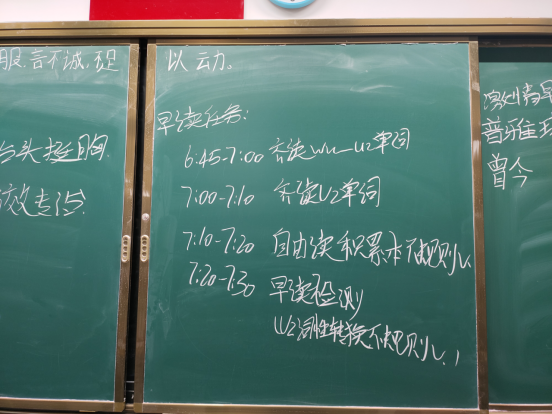 服.言不诚,琐
以动。
抬头挺胸.
高效专注!
早读任务:
6:45-7:00 齐读Wu—U2单词
7:00-7:10 齐读U2单词
7:10-7:20 自由读积累本不规则v.
7:20-7:30 早读检测
U2词性转换不规则v.
普雅
曾今